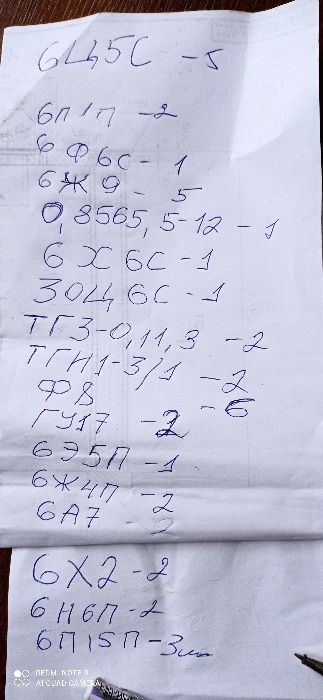 6Ц5С - 5
6П1П - 2
6Ф6С - 1
6Ж9 - 5
0,8565,5-12 - 1
6Х6С - 1
30Ц6С - 1
ТГ3-0,1/1,3 - 2
ТГИ1-3/1 - 2
Ф8 - 6
ГУ17 - 2
6Э5П - 1
6Ж4П - 2
6А7 - 2
6Х2 - 2
6Н6П - 2
6П15П - 3шт
REDMI NOTE 9
AI QUAD CAMERA